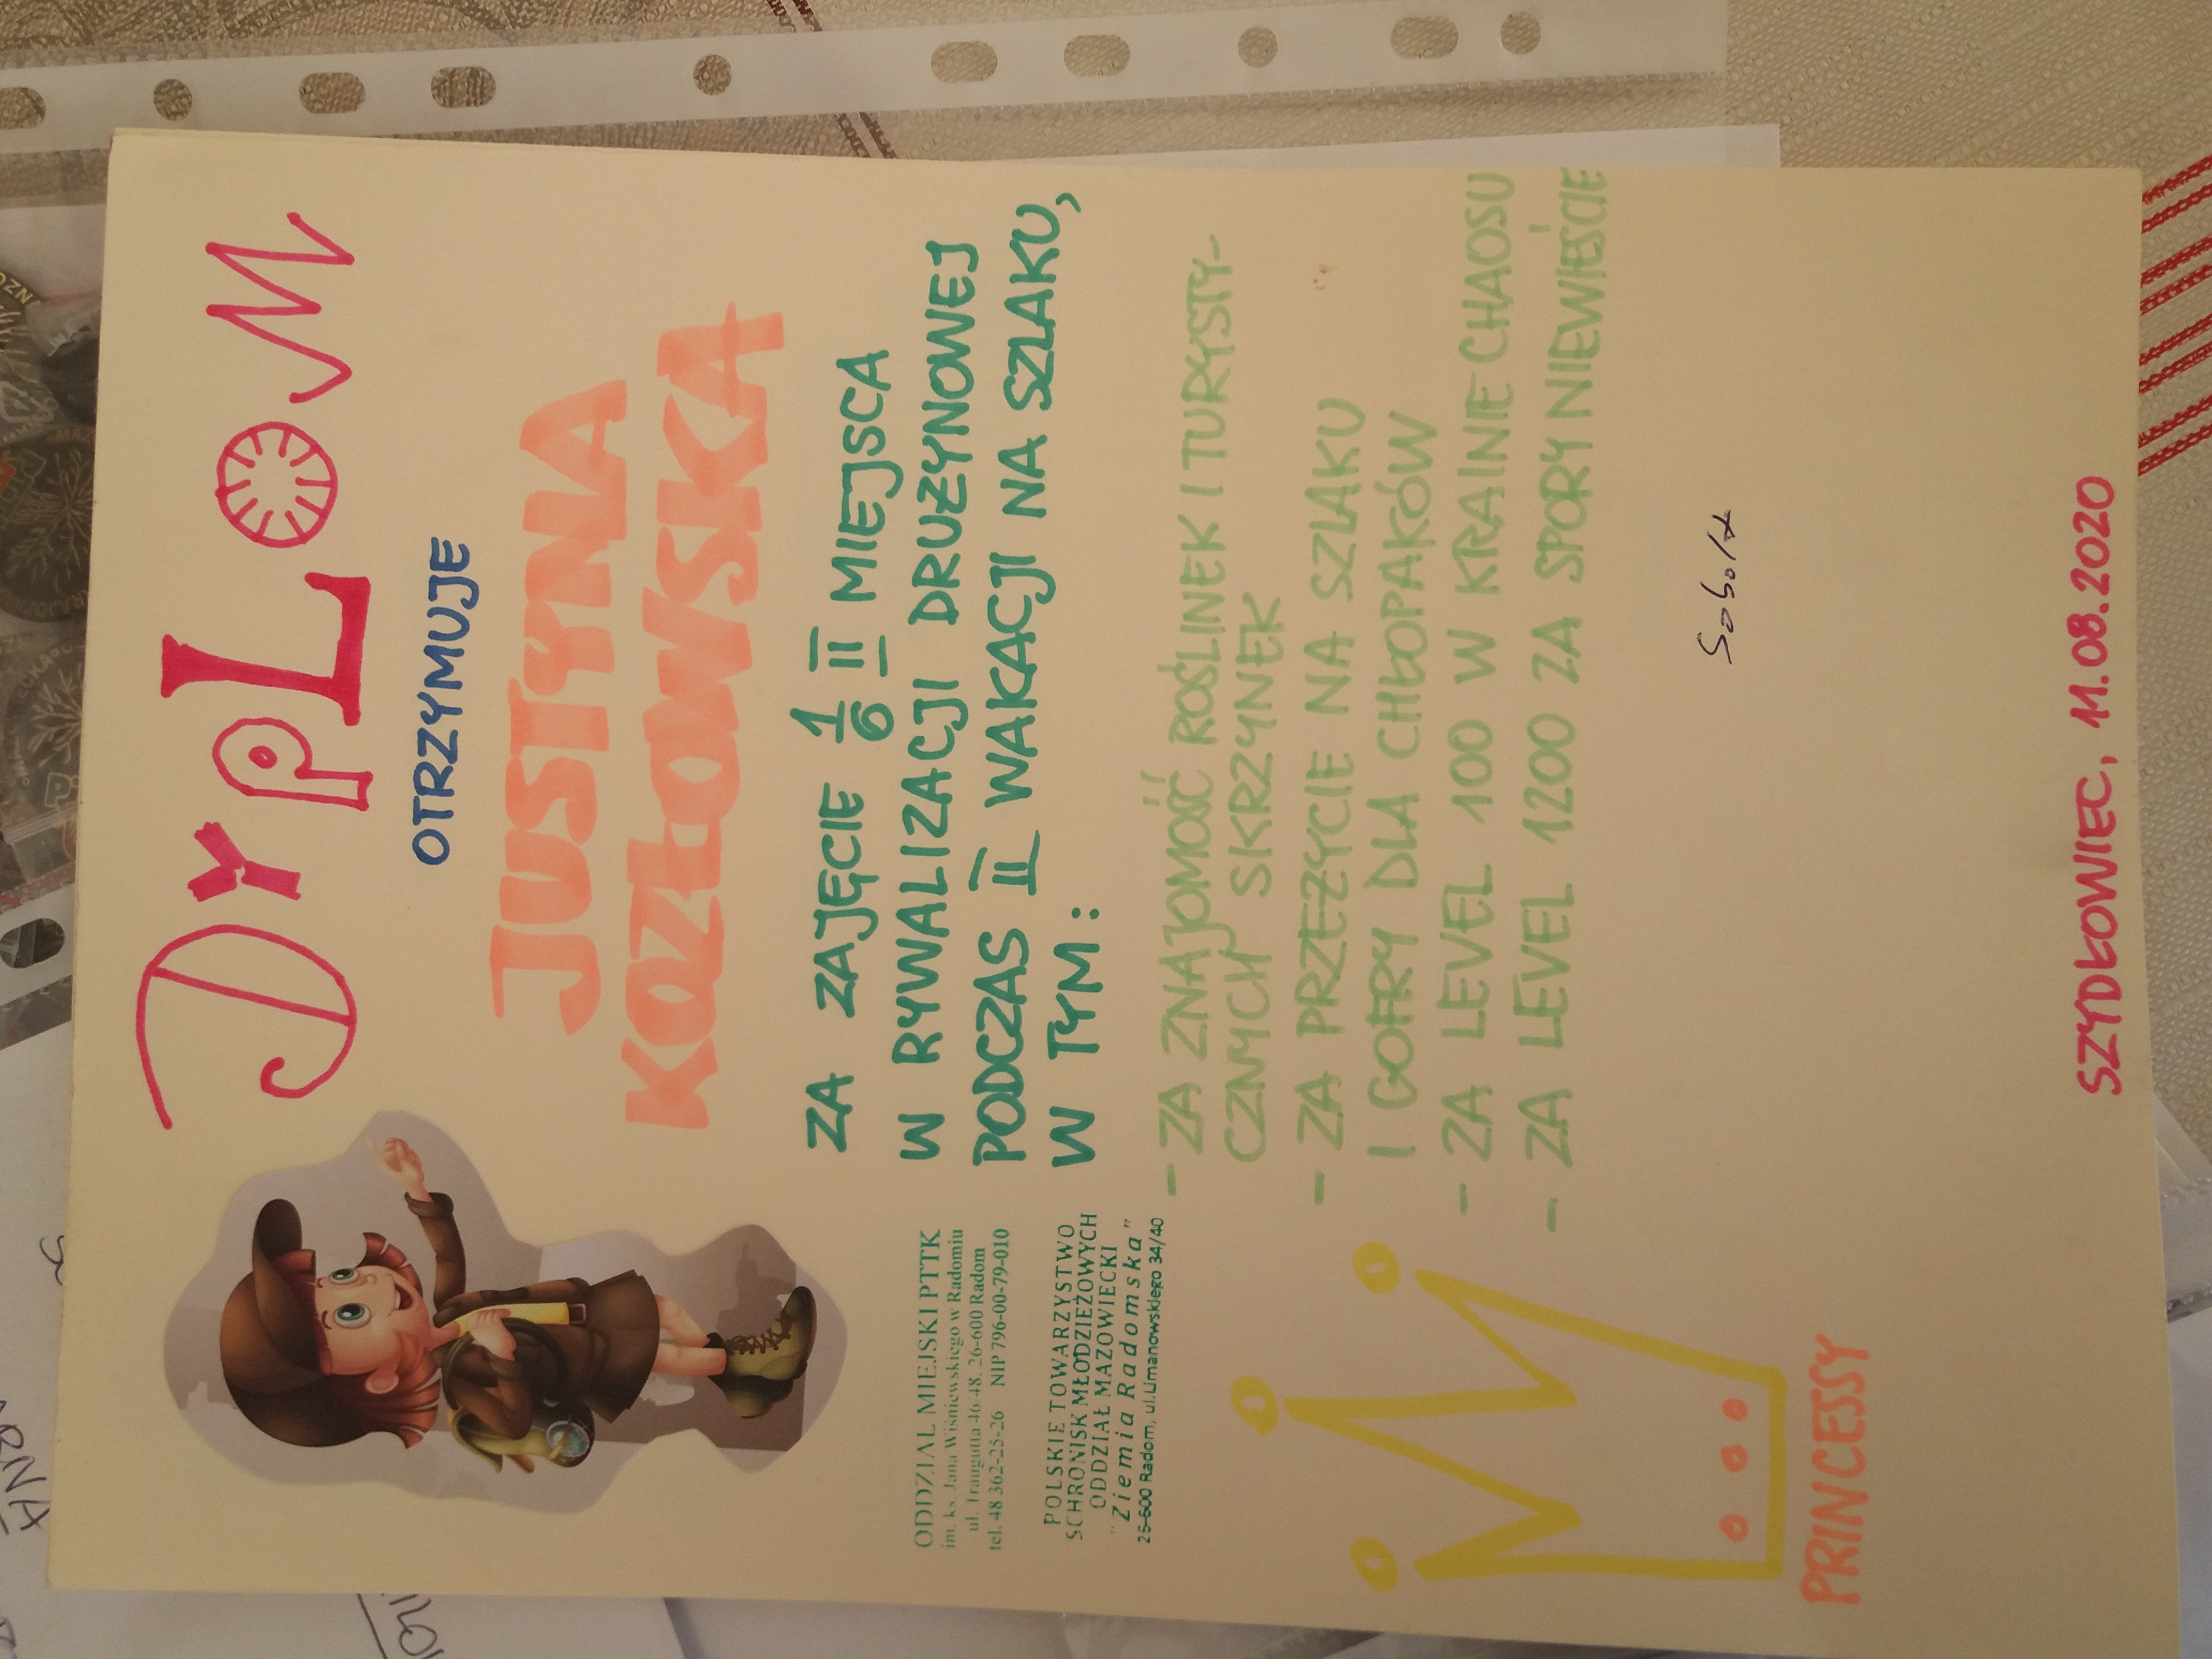 DYPLOM
OTRZYMUJE
JUSTYNA
KOZŁOWSKA
ZA ZAJĘCIE 1/6 II MIEJSCA
W RYWALIZACJI DRUŻYNOWEJ
PODCZAS II WAKACJI NA SZLAKU,
W TYM:
- ZA ZNAJOMOŚĆ ROŚLINEK I TURYSTY-
CZNYCH SKRZYNEK
- ZA PRZEŻYCIE NA SZLAKU
I GOFRY DLA CHŁOPAKÓW
- ZA LEVEL 100 W KRAINIE CHAOSU
- ZA LEVEL 1200 ZA SPORY NIEWIEŚCIE
ODDZIAŁ MIEJSKI PTTK
im. ks. Jana Wiśniewskiego w Radomiu
ul. Traugutta 46/48, 26-600 Radom
tel. 48 362-25-26 NIP 796-00-79-010
POLSKIE TOWARZYSTWO
SCHRONISK MŁODZIEŻOWYCH
ODDZIAŁ MAZOWIECKI
"Ziemia Radomska"
26-600 Radom, ul.Limanowskiego 34/40
PRINCESSY
SZYDŁOWIEC, 11.08.2020